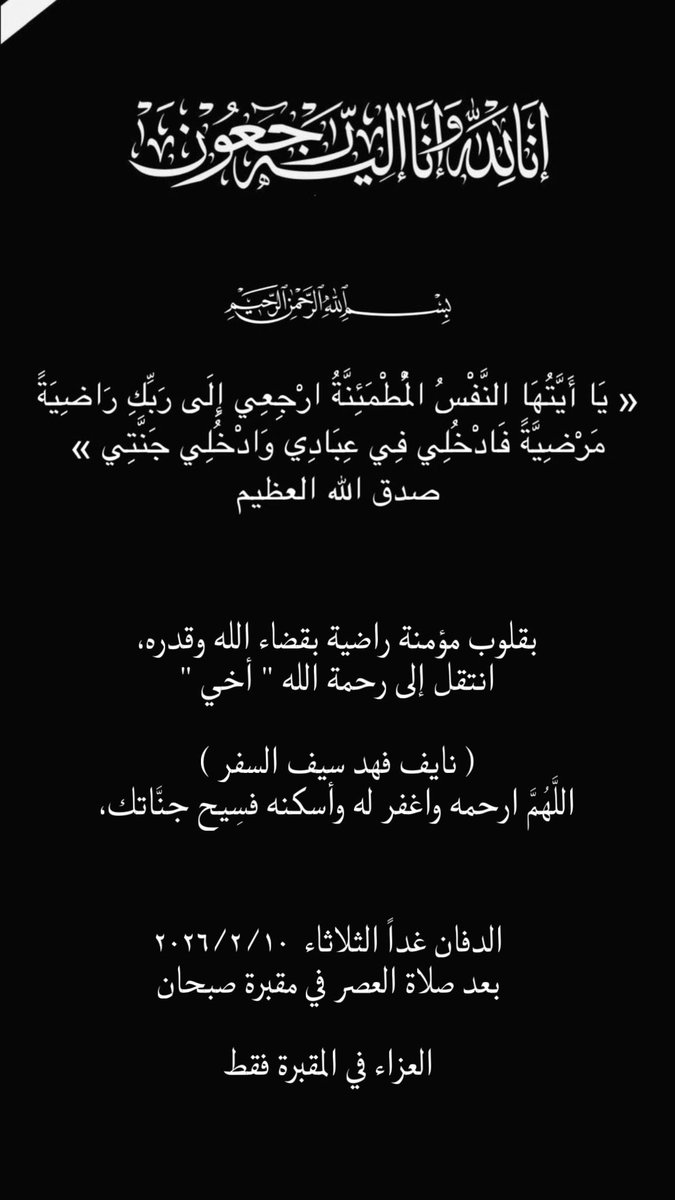 إنا لله وإنا إليه راجعون
بِسْمِ اللهِ الرَّحْمٰنِ الرَّحِيمِ
« يَا أَيَّتُهَا النَّفْسُ الْمُطْمَئِنَّةُ ارْجِعِي إِلَى رَبِّكِ رَاضِيَةً
مَرْضِيَّةً فَادْخُلِي فِي عِبَادِي وَادْخُلِي جَنَّتِي »
صدق الله العظيم
بقلوب مؤمنة راضية بقضاء الله وقدره،
انتقل إلى رحمة الله " أخي "
( نايف فهد سيف السفر )
اللَّهُمَّ ارحمه واغفر له وأسكنه فسِيح جنَّاتك،
الدفان غداً الثلاثاء ٢٠٢٦/٢/١٠
بعد صلاة العصر في مقبرة صبحان
العزاء في المقبرة فقط